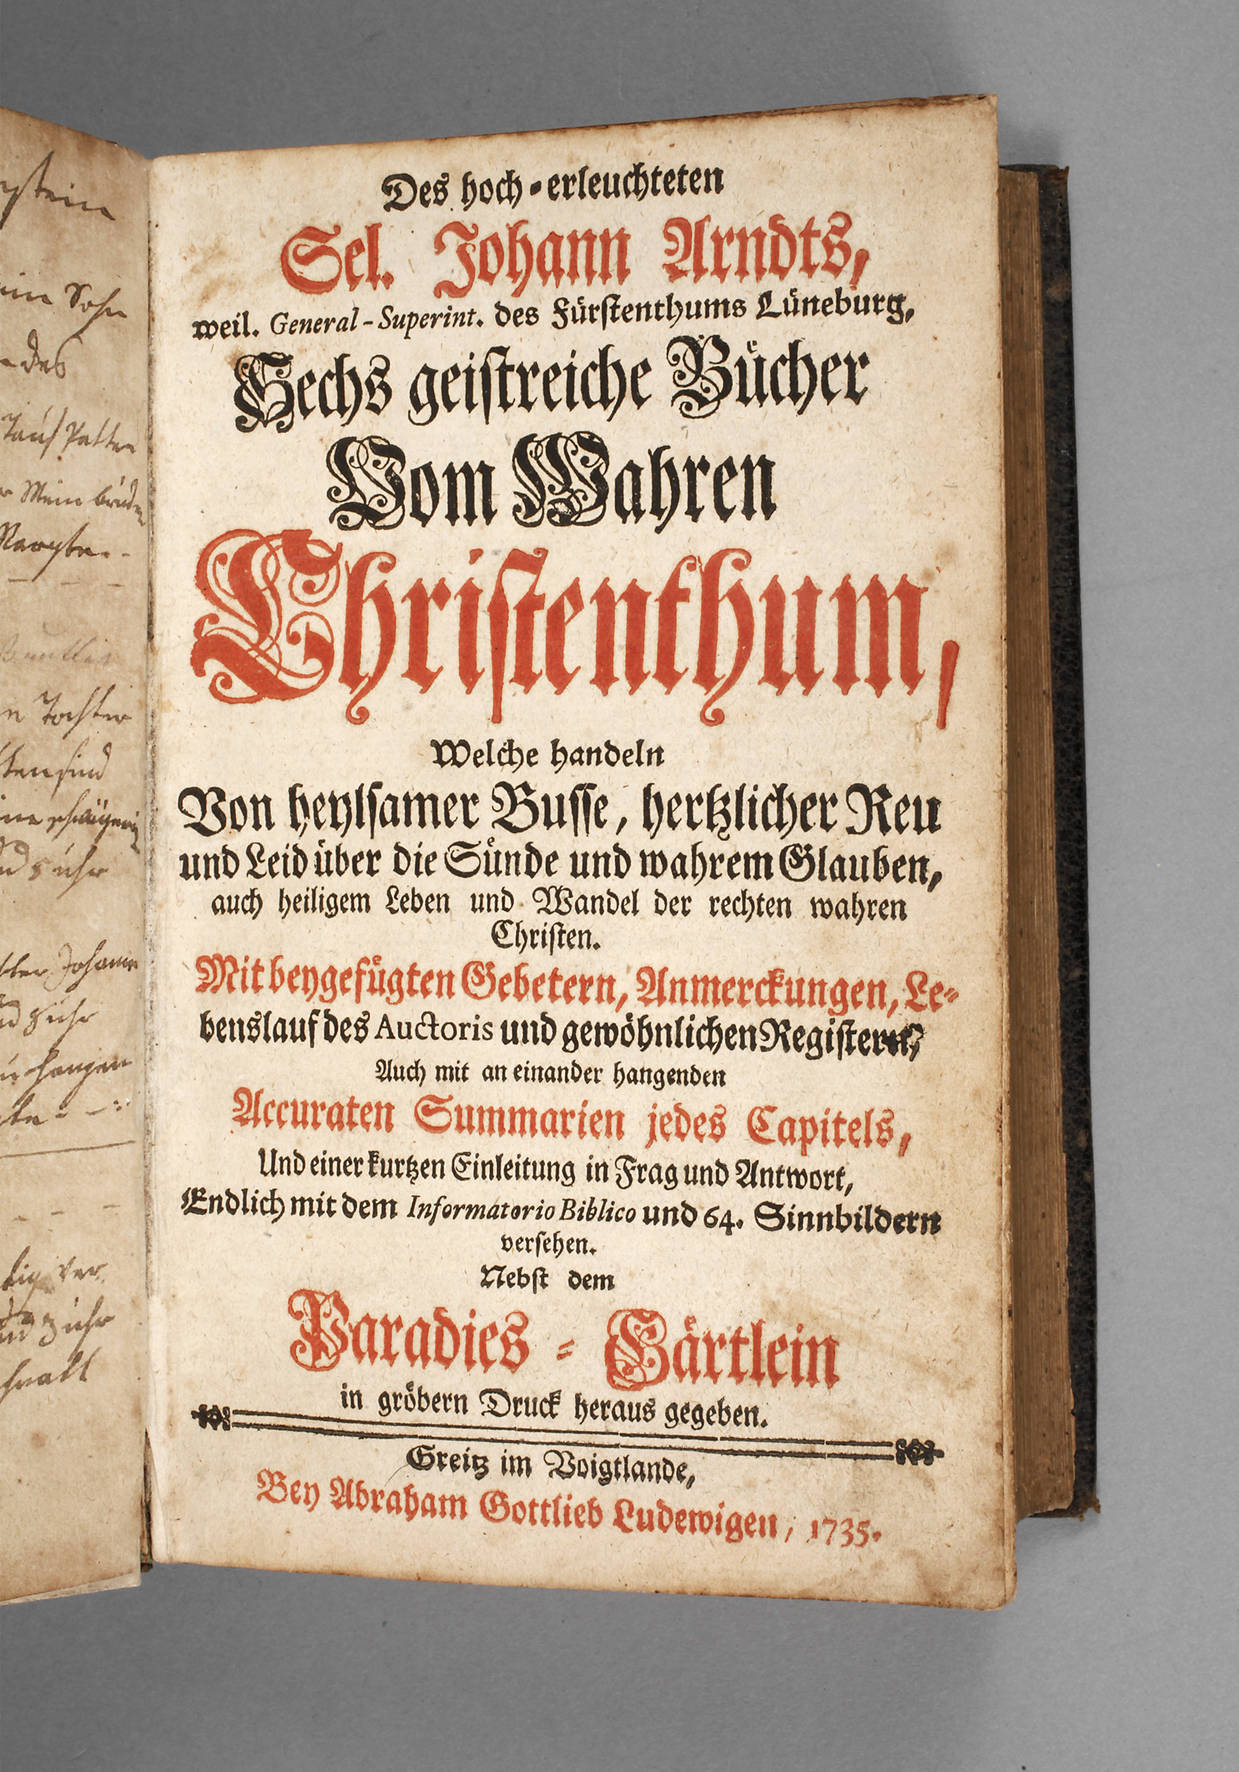 ein Sohn
des
Tauf Patten
Mein bruder
Tochter
sind
uhr
Johann
uhr
ver
uhr
Des hoch-erleuchteten
Sel. Johann Arndts,
weil. General-Superint. des Fürstenthums Lüneburg,
Sechs geistreiche Bücher
Vom Wahren
Christenthum,
Welche handeln
Von heylsamer Busse, hertzlicher Reu
und Leid über die Sünde und wahrem Glauben,
auch heiligem Leben und Wandel der rechten wahren
Christen.
Mit beygefügten Gebetern, Anmerckungen, Le-
benslauf des Auctoris und gewöhnlichen Registern,
Auch mit an einander hangenden
Accuraten Summarien jedes Capitels,
Und einer kurtzen Einleitung in Frag und Antwort,
Endlich mit dem Informatorio Biblico und 64. Sinnbildern
versehen.
Nebst dem
Paradies-Gärtlein
in gröbern Druck heraus gegeben.
Greitz im Voigtlande,
Bey Abraham Gottlieb Ludewigen, 1735.